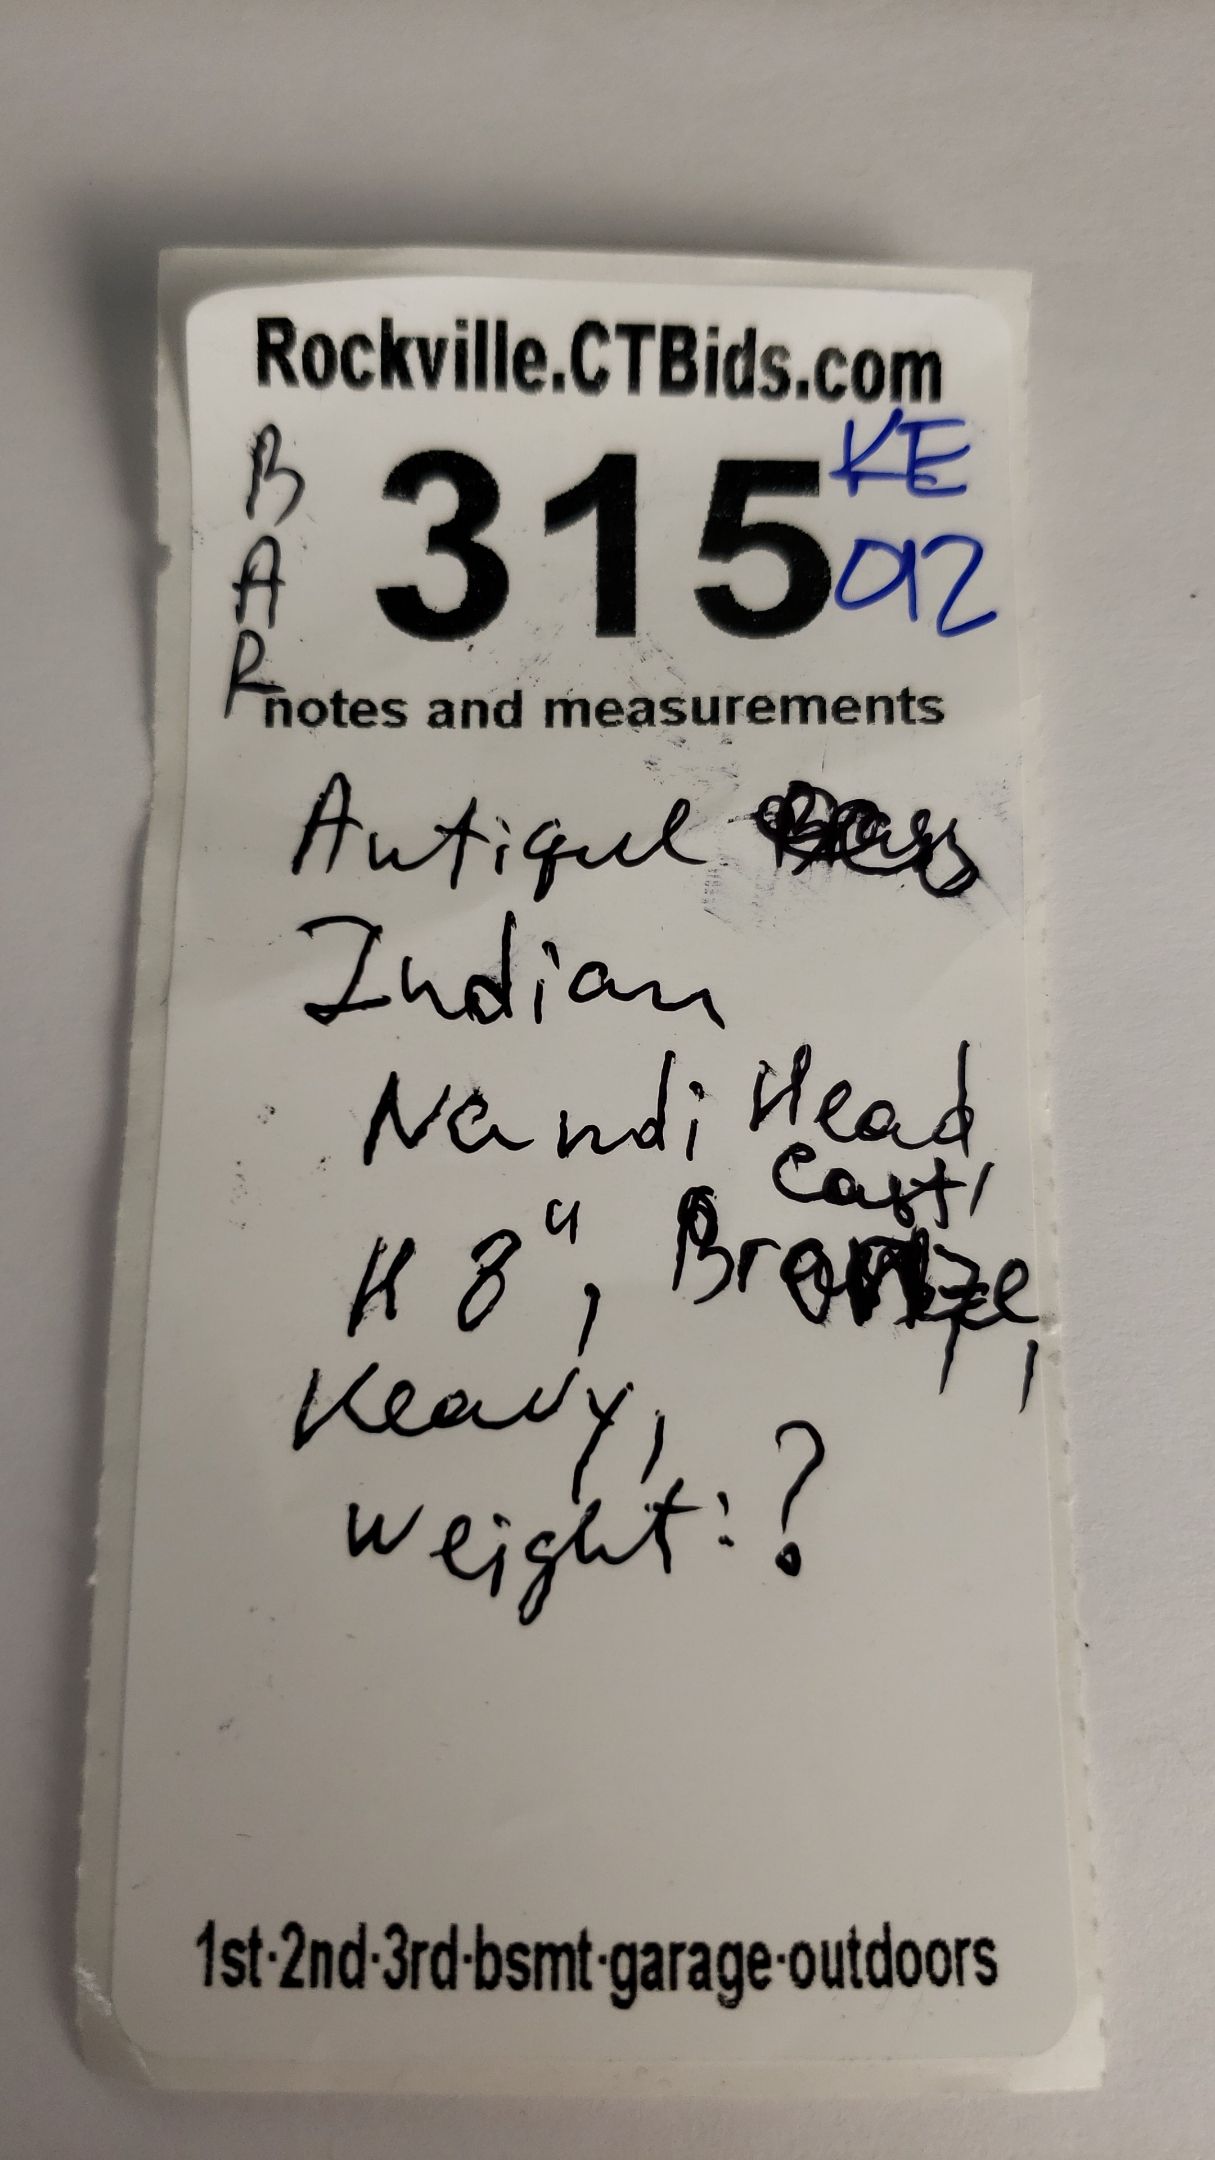 Rockville.CTBids.com
BAR
315
KE
012
notes and measurements
Antique
Indian
Nandi Head
cast,
H 8", Bronze,
Heavy,
weight: ?
1st·2nd·3rd·bsmt·garage·outdoors